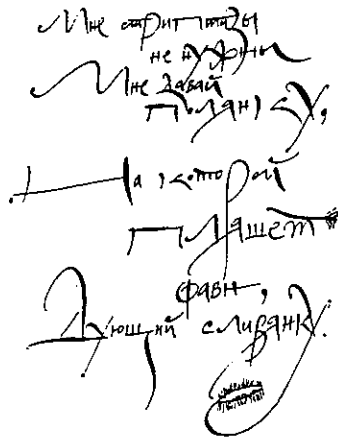 Мне скрижали
не нужны
Мне давай
поляну,
На которой
пляшет
фавн,
Дующий сливянку.